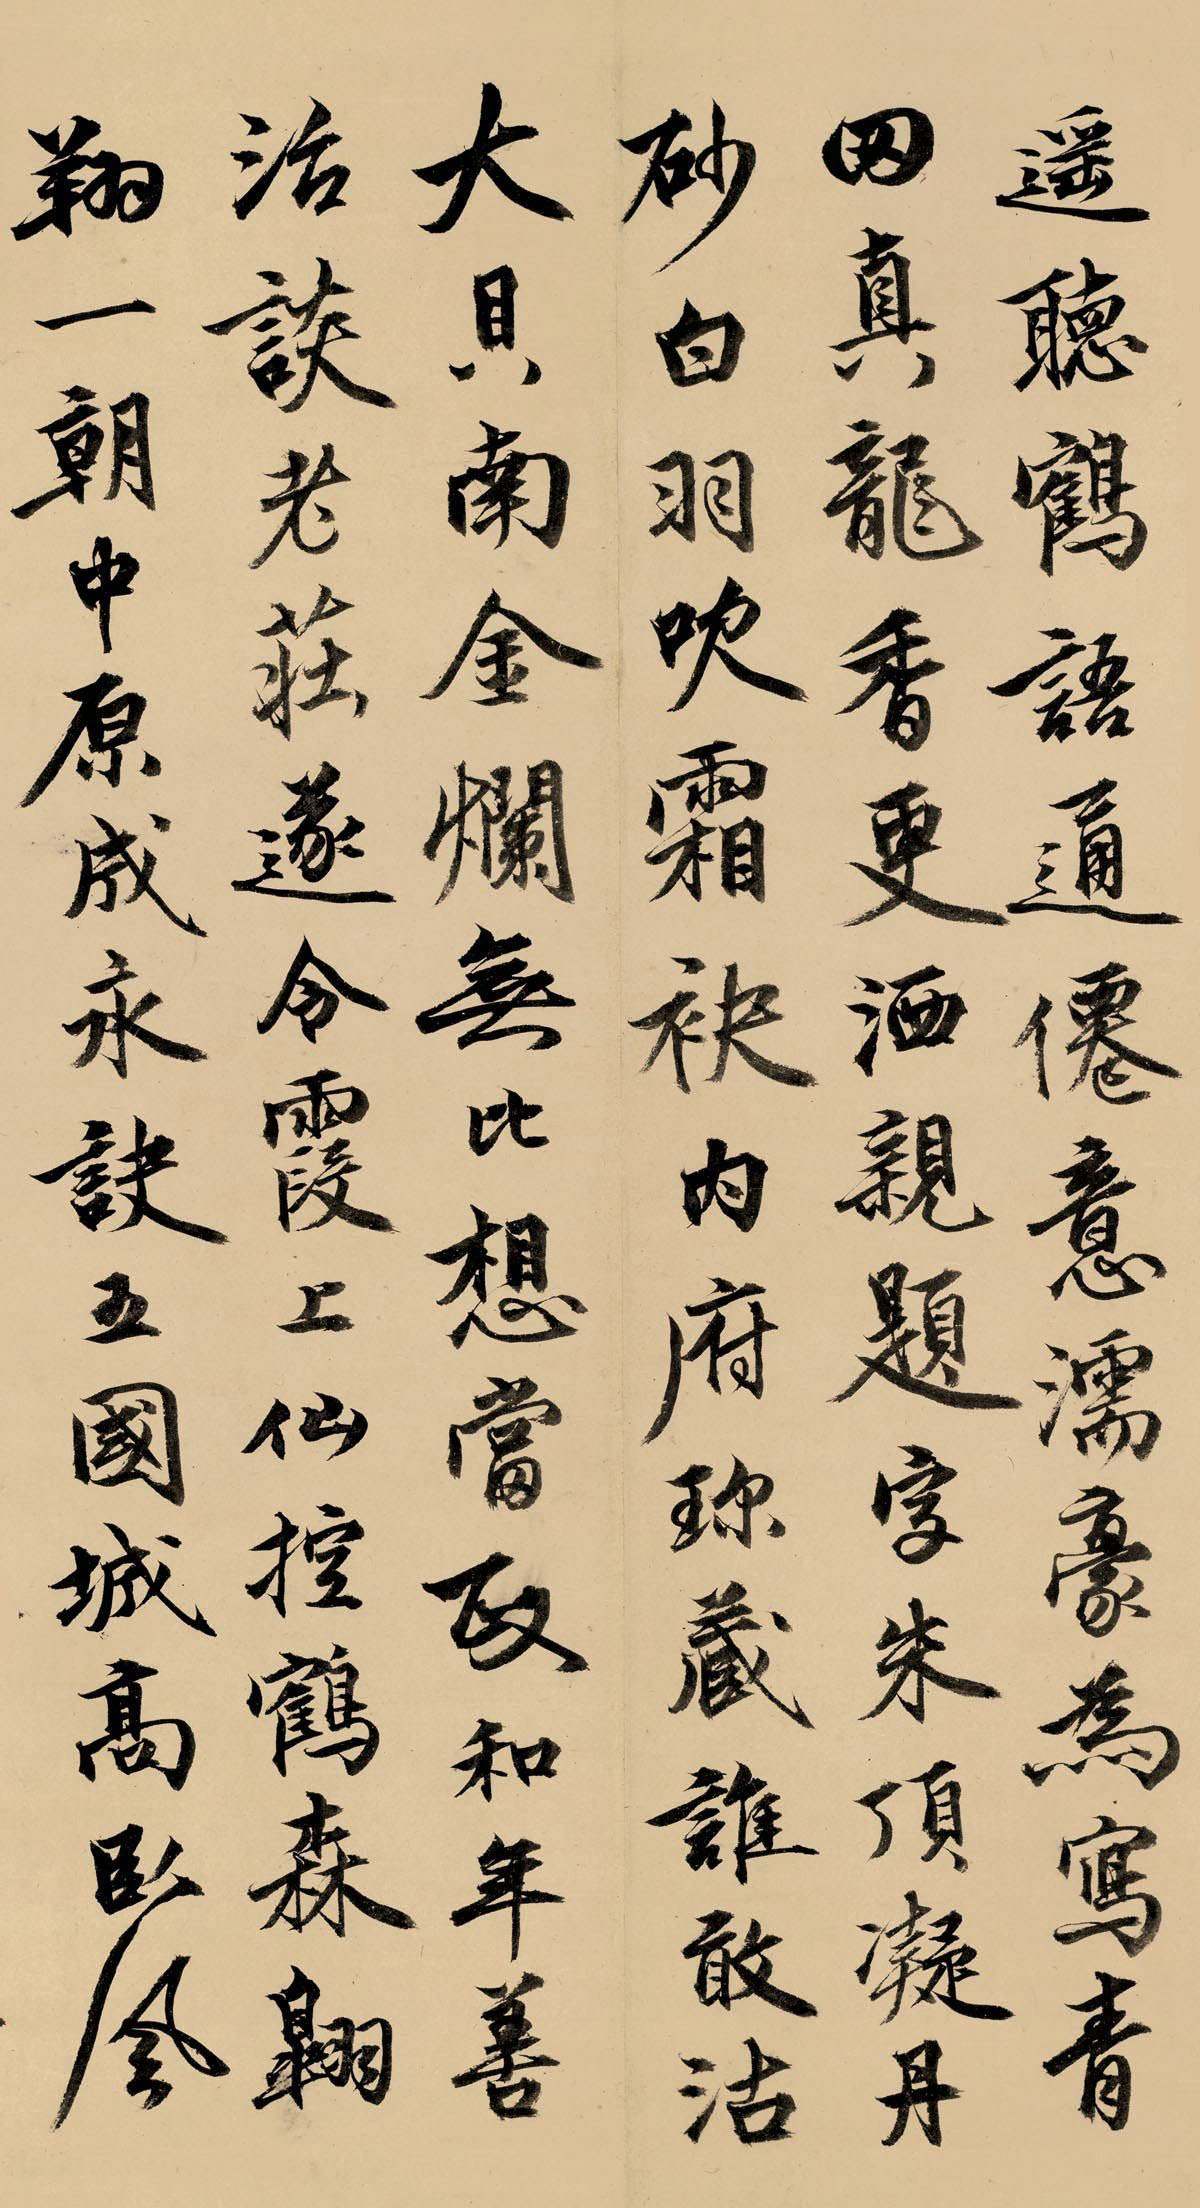 遥聽鶴語通僊意濡豪為寫青
田真龍香更洒親題字朱頂凝丹
砂白羽吹霜袂内府珎藏誰敢沽
大貝南金爛無比想當政和年善
治談老莊遂令霞上仙控鶴森翱
翔一朝中原成永訣五國城高臥風